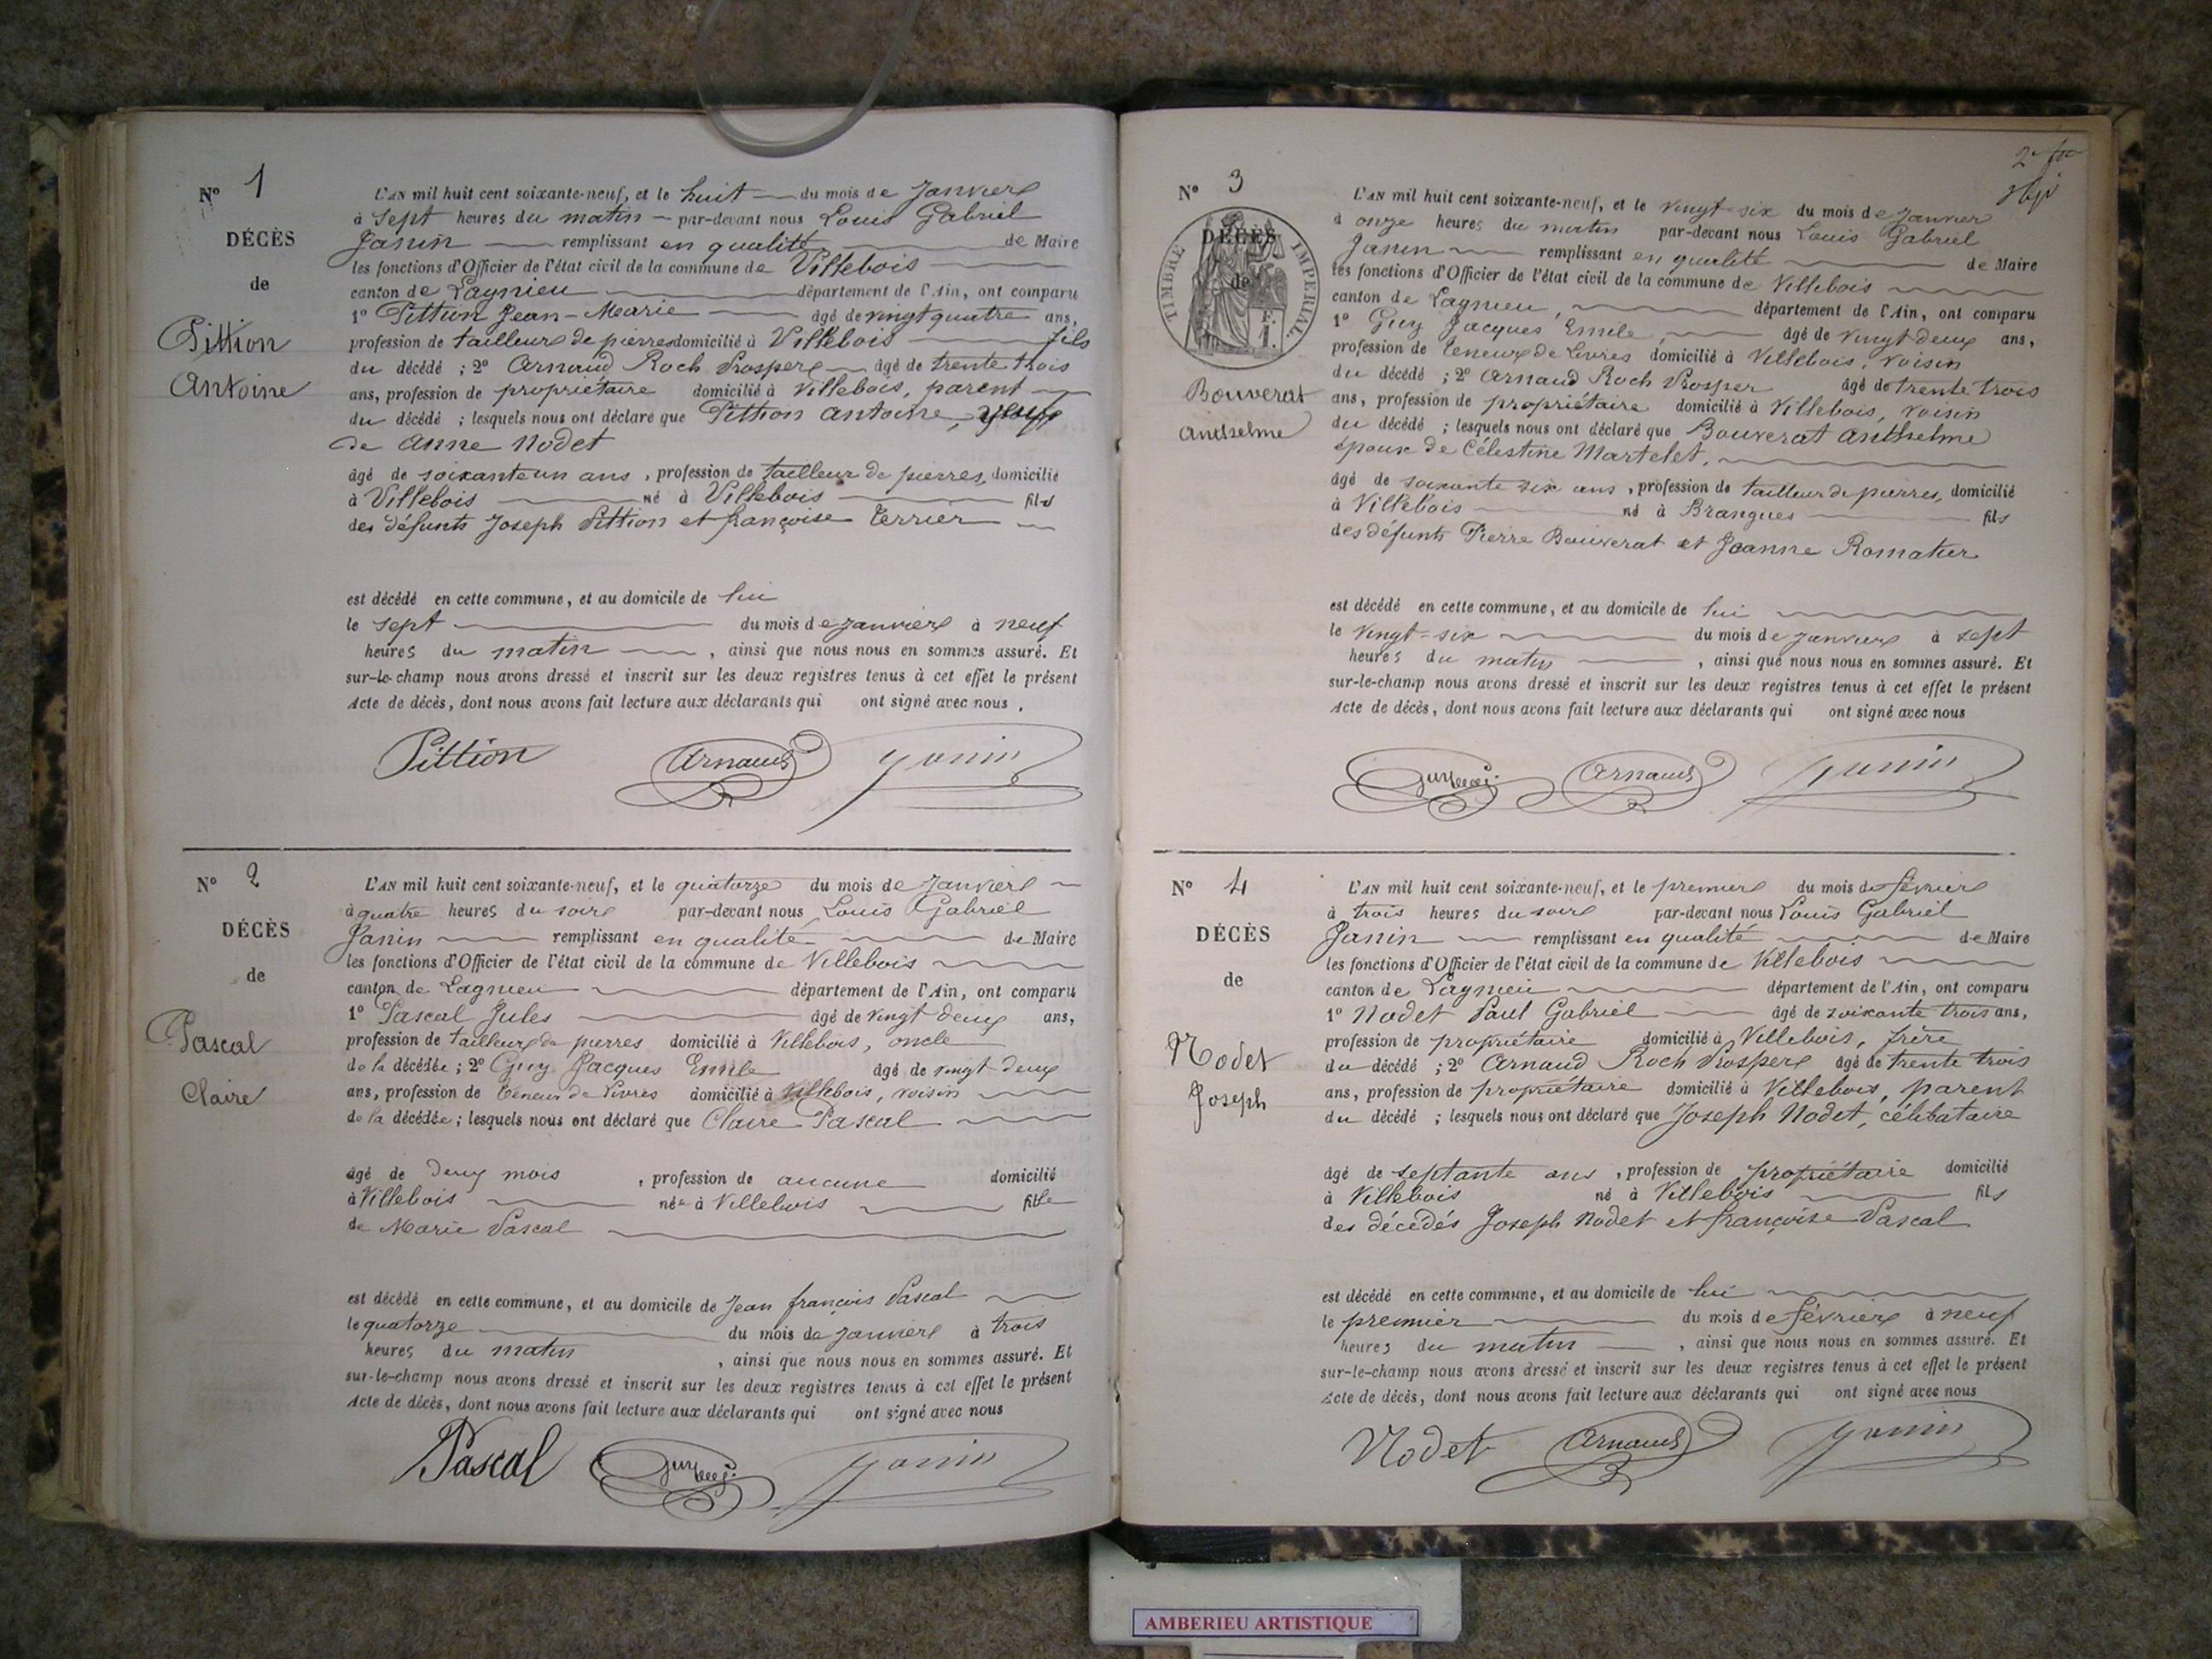 N° 1
DÉCÈS
de
Pittion
Antoine
L'AN mil huit cent soixante-neuf, et le huit du mois de Janvier
à sept heures du matin par-devant nous Louis Gabriel
Janin remplissant en qualité de Maire
les fonctions d'Officier de l'état civil de la commune de Villebois
canton de Lagnieu département de l'Ain, ont comparu
1° Pittion Jean-Marie âgé de vingt quatre ans,
profession de tailleur de pierres domicilié à Villebois fils
du décédé ; 2° Arnaud Roch Prosper âgé de trente trois
ans, profession de propriétaire domicilié à Villebois, parent
du décédé ; lesquels nous ont déclaré que Pittion Antoine, veuf
de Anne Nodet
âgé de soixante un ans, profession de tailleur de pierres, domicilié
à Villebois né à Villebois fils
des défunts Joseph Pittion et françoise Terrier
est décédé en cette commune, et au domicile de lui
le sept du mois de Janvier à neuf
heures du matin, ainsi que nous nous en sommes assuré. Et
sur-le-champ nous avons dressé et inscrit sur les deux registres tenus à cet effet le présent
Acte de décès, dont nous avons fait lecture aux déclarants qui ont signé avec nous.
Pittion Arnaud Janin
N° 2
DÉCÈS
de
Pascal
Claire
L'AN mil huit cent soixante-neuf, et le quatorze du mois de Janvier
à quatre heures du soir par-devant nous Louis Gabriel
Janin remplissant en qualité de Maire
les fonctions d'Officier de l'état civil de la commune de Villebois
canton de Lagnieu département de l'Ain, ont comparu
1° Pascal Jules âgé de vingt deux ans,
profession de tailleur de pierres domicilié à Villebois, oncle
de la décédée ; 2° Guy Jacques Emile âgé de vingt deux
ans, profession de teneur de Livres domicilié à Villebois, voisin
de la décédée ; lesquels nous ont déclaré que Claire Pascal
âgé de deux mois, profession de aucune domicilié
à Villebois née à Villebois fille
de Marie Pascal
est décédé en cette commune, et au domicile de Jean françois Pascal
le quatorze du mois de Janvier à trois
heures du matin, ainsi que nous nous en sommes assuré. Et
sur-le-champ nous avons dressé et inscrit sur les deux registres tenus à cet effet le présent
Acte de décès, dont nous avons fait lecture aux déclarants qui ont signé avec nous
Pascal Guy Janin
N° 3
TIMBRE IMPERIAL
DÉCÈS
de
1 F.
Bouverat
Anthelme
L'AN mil huit cent soixante-neuf, et le vingt-six du mois de Janvier
à onze heures du matin par-devant nous Louis Gabriel
Janin remplissant en qualité de Maire
les fonctions d'Officier de l'état civil de la commune de Villebois
canton de Lagnieu, département de l'Ain, ont comparu
1° Guy Jacques Emile, âgé de vingt deux ans,
profession de teneur de Livres domicilié à Villebois, voisin
du décédé ; 2° Arnaud Roch Prosper âgé de trente trois
ans, profession de propriétaire domicilié à Villebois, voisin
du décédé ; lesquels nous ont déclaré que Bouverat Anthelme
époux de Célestine Martelet,
âgé de soixante six ans, profession de tailleur de pierres, domicilié
à Villebois né à Brangues fils
des défunts Pierre Bouverat et Jeanne Romatier
est décédé en cette commune, et au domicile de lui
le vingt-six du mois de Janvier à sept
heures du matin, ainsi que nous nous en sommes assuré. Et
sur-le-champ nous avons dressé et inscrit sur les deux registres tenus à cet effet le présent
Acte de décès, dont nous avons fait lecture aux déclarants qui ont signé avec nous
Guy Arnaud Janin
N° 4
DÉCÈS
de
Nodet
Joseph
L'AN mil huit cent soixante-neuf, et le premier du mois de février
à trois heures du soir par-devant nous Louis Gabriel
Janin remplissant en qualité de Maire
les fonctions d'Officier de l'état civil de la commune de Villebois
canton de Lagnieu département de l'Ain, ont comparu
1° Nodet Paul Gabriel âgé de soixante trois ans,
profession de propriétaire domicilié à Villebois, frère
du décédé ; 2° Arnaud Roch Prosper âgé de trente trois
ans, profession de propriétaire domicilié à Villebois, parent
du décédé ; lesquels nous ont déclaré que Joseph Nodet, célibataire
âgé de septante ans, profession de propriétaire domicilié
à Villebois né à Villebois fils
des décédés Joseph Nodet et françoise Pascal
est décédé en cette commune, et au domicile de lui
le premier du mois de février à neuf
heures du matin, ainsi que nous nous en sommes assuré. Et
sur-le-champ nous avons dressé et inscrit sur les deux registres tenus à cet effet le présent
Acte de décès, dont nous avons fait lecture aux déclarants qui ont signé avec nous
Nodet Arnaud Janin
AMBERIEU ARTISTIQUE